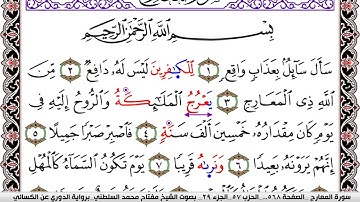 بِسْمِ ٱللَّهِ ٱلرَّحْمَٰنِ ٱلرَّحِيمِ
سَأَلَ سَآئِلٌۢ بِعَذَابٍ وَاقِعٍ ١ لِّلْكَٰفِرِينَ لَيْسَ لَهُۥ دَافِعٌ ٢ مِّنَ
ٱللَّهِ ذِى ٱلْمَعَارِجِ ٣ يَعْرُجُ ٱلْمَلَٰٓئِكَةُ وَٱلرُّوحُ إِلَيْهِ فِى
يَوْمٍ كَانَ مِقْدَارُهُۥ خَمْسِينَ أَلْفَ سَنَةٍ ٤ فَٱصْبِرْ صَبْرًا جَمِيلًا ٥
إِنَّهُمْ يَرَوْنَهُۥ بَعِيدًا ٦ وَنَرَىٰهُ قَرِيبًا ٧ يَوْمَ تَكُونُ ٱلسَّمَآءُ كَٱلْمُهْلِ
سورة المعارج . الصفحة ٥٦٨ .. الحزب ٥٧ الجزء ٢٩ . بصوت الشيخ مفتاح محمد السلطني برواية الدوري عن الكسائي